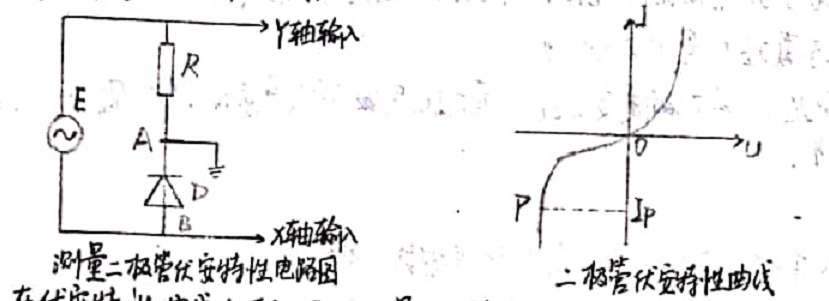 Y轴输入
R
E
A
D
B
X轴输入
测量二极管伏安特性电路图
I
O
U
P
Ip
二极管伏安特性曲线
在伏安特